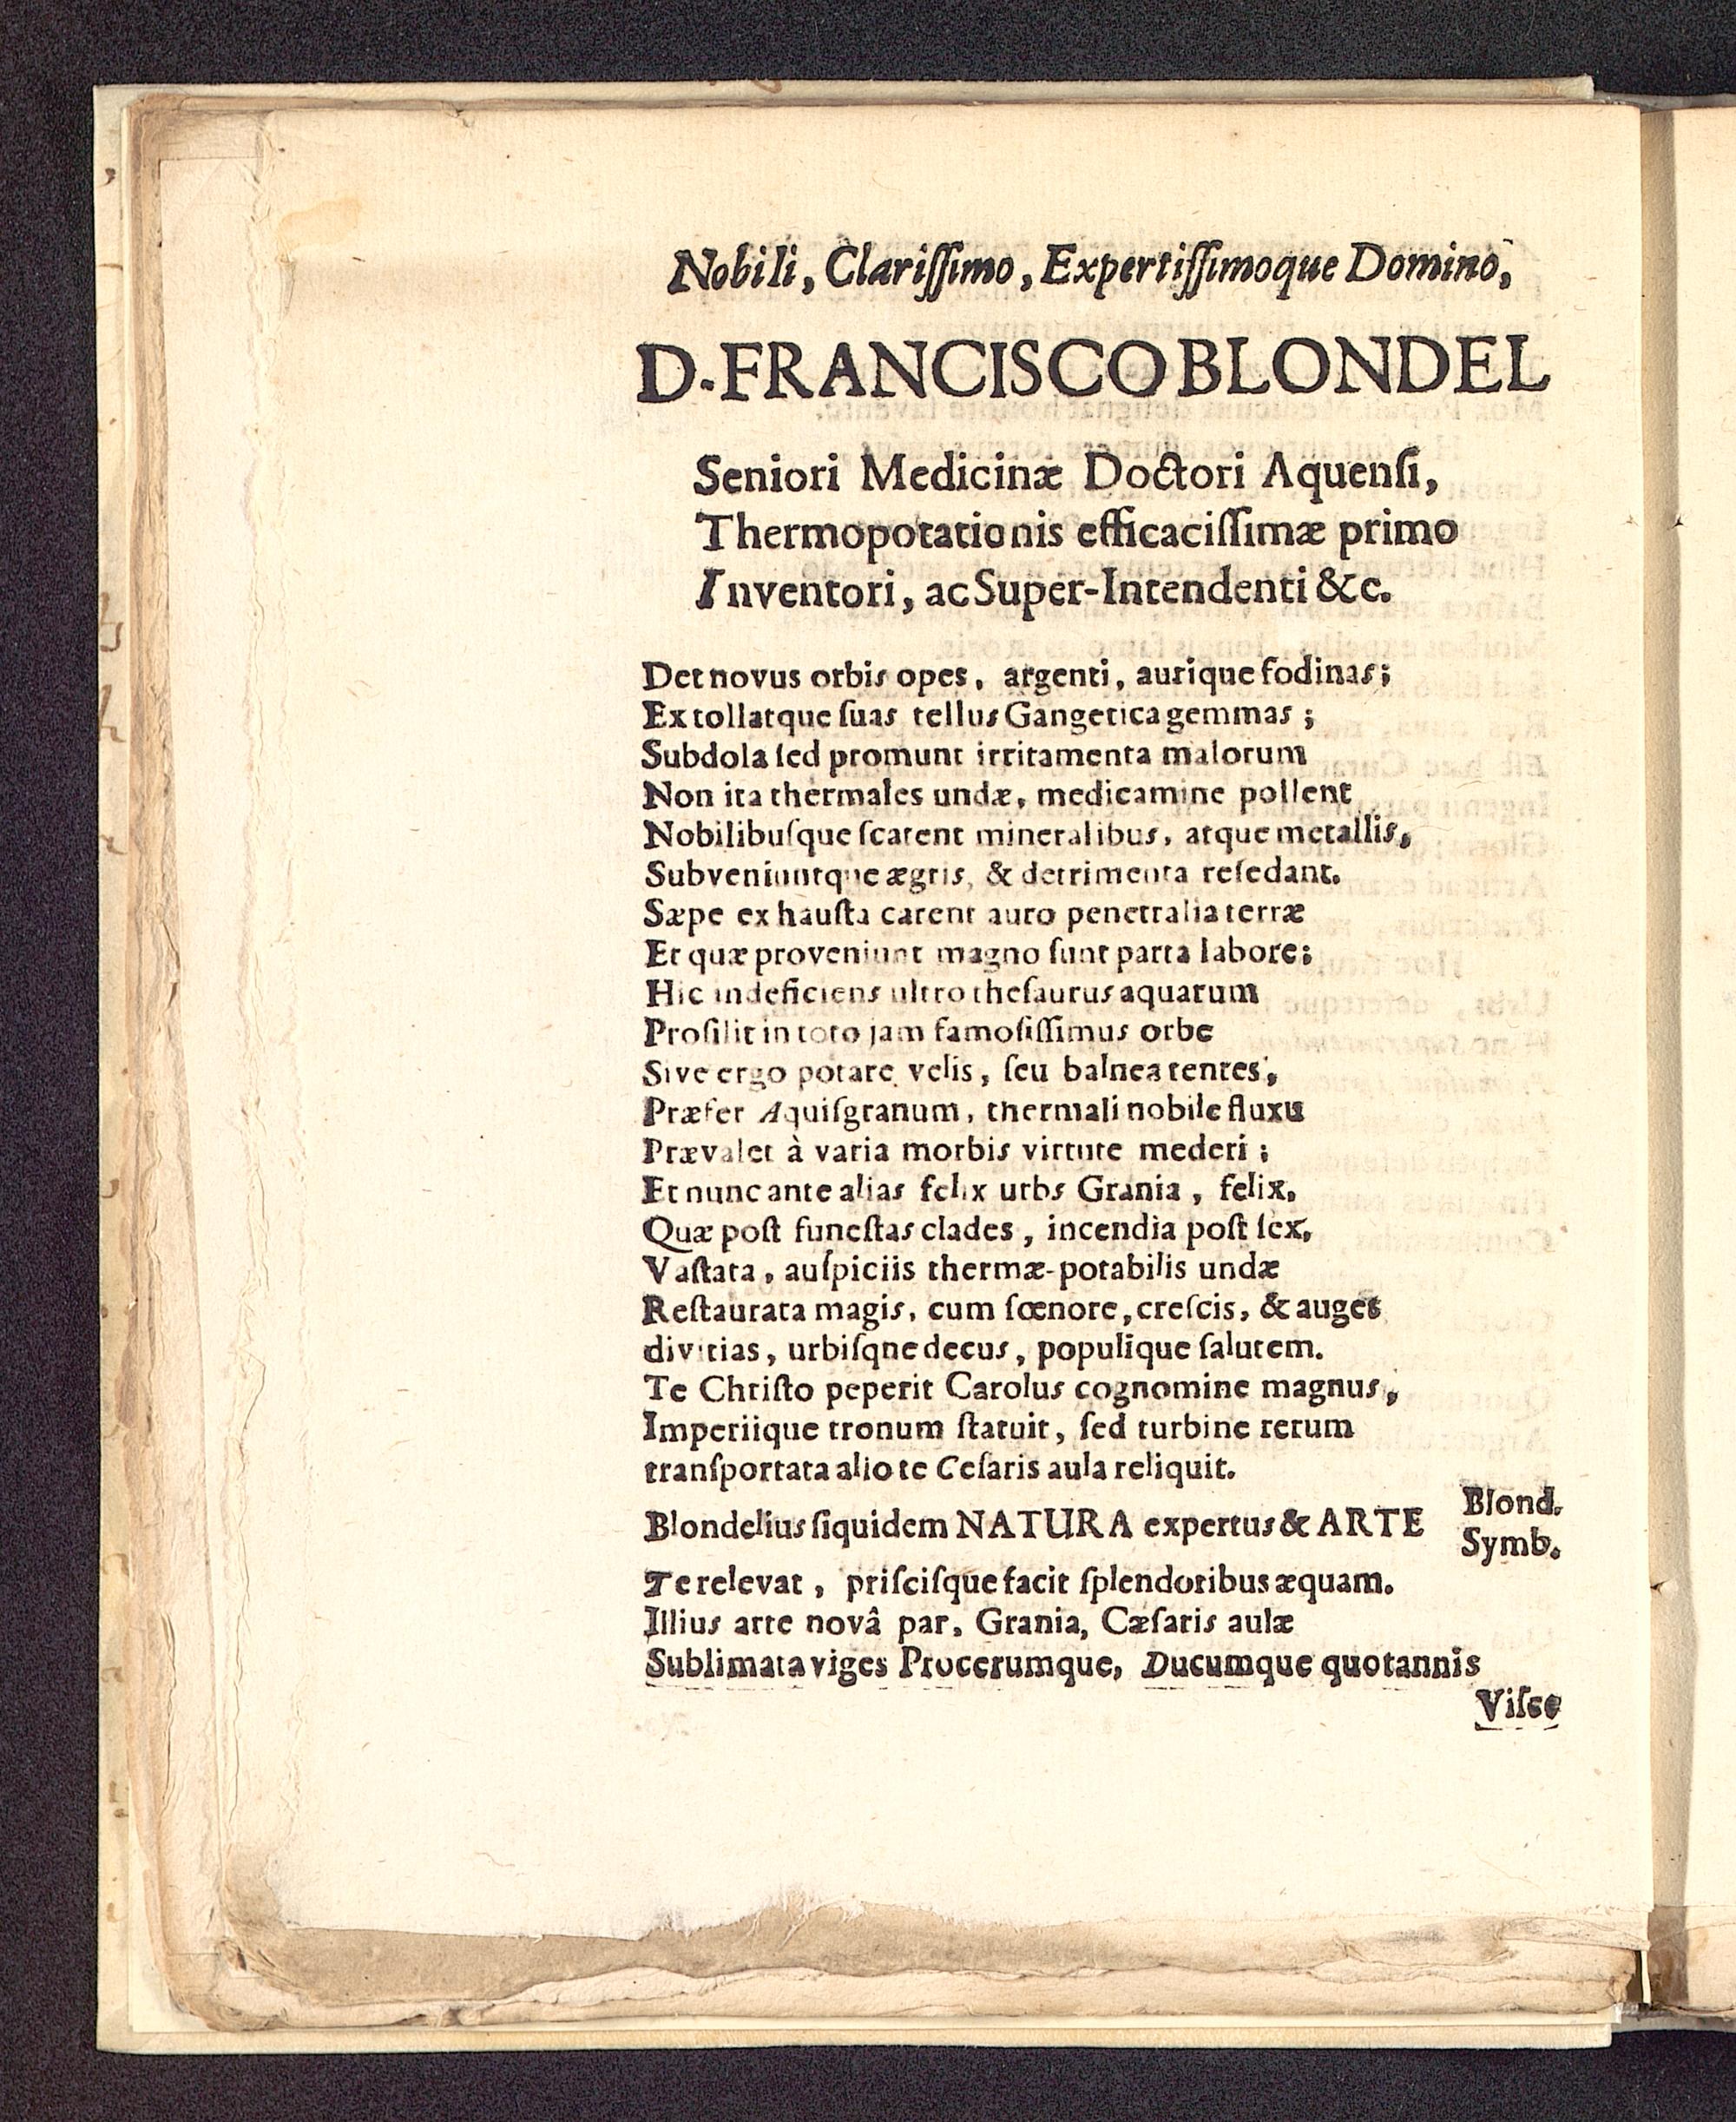 Nobili, Clariſſimo, Expertiſſimoque Domino,
D. FRANCISCO BLONDEL
Seniori Medicinæ Doctori Aquenſi,
Thermopotationis efficaciſſimæ primo
Inventori, ac Super-Intendenti &c.
Det novus orbis opes, argenti, aurique fodinas;
Extollatque ſuas tellus Gangetica gemmas;
Subdola ſed promunt irritamenta malorum
Non ita thermales undæ, medicamine pollent
Nobilibuſque ſcatent mineralibus, atque metallis,
Subveniuntque ægris, & detrimenta reſedant.
Sæpe exhauſta carent auro penetralia terræ
Et quæ proveniunt magno ſunt parta labore;
Hic indeficiens ultro theſaurus aquarum
Proſilit in toto jam famoſiſſimus orbe
Sive ergo potare velis, ſeu balnea tentes,
Præfer Aquiſgranum, thermali nobile fluxu
Prævalet à varia morbis virtute mederi;
Et nunc ante alias felix urbs Grania, felix,
Quæ poſt funeſtas clades, incendia poſt ſex,
Vaſtata, auſpiciis thermæ-potabilis undæ
Reſtaurata magis, cum fœnore, creſcis, & auges
divitias, urbiſqne decus, populique ſalutem.
Te Chriſto peperit Carolus cognomine magnus,
Imperiique tronum ſtatuit, ſed turbine rerum
tranſportata alio te Ceſaris aula reliquit.
Blondelius ſiquidem NATURA expertus & ARTE Blond. Symb.
Te relevat, priſciſque facit ſplendoribus æquam.
Illius arte novâ par, Grania, Cæſaris aulæ
Sublimata viges Procerumque, Ducumque quotannis
Viſce